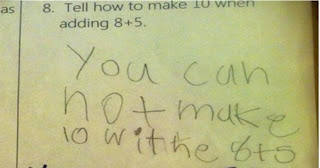 as
8. Tell how to make 10 when
adding 8+5.
You can
not make
10 withhe 8+5